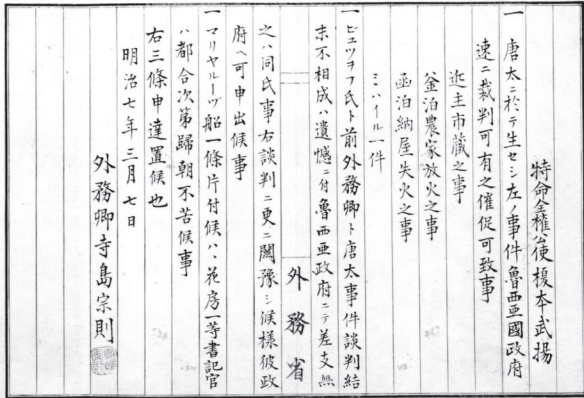 特命全権公使榎本武揚
一 唐太ニ於テ生セシ左ノ事件魯西亜國政府
速ニ裁判可有之催促可致事
近主市蔵之事
釜泊農家放火之事
函泊納屋失火之事
ミハイル一件
一 ビュツヲフ氏ト前外務卿ト唐太事件談判結
末不相成ハ遺憾ニ付魯西亜政府ニテ差支無
外務省
之ハ同氏事右談判ニ更ニ関豫シ候様彼政
府ヘ可申出候事
一 マリヤルーヅ船一條片付候ハヽ花房一等書記官
ハ都合次第歸朝不苦候事
右三條申達置候也
明治七年三月七日
外務卿寺島宗則